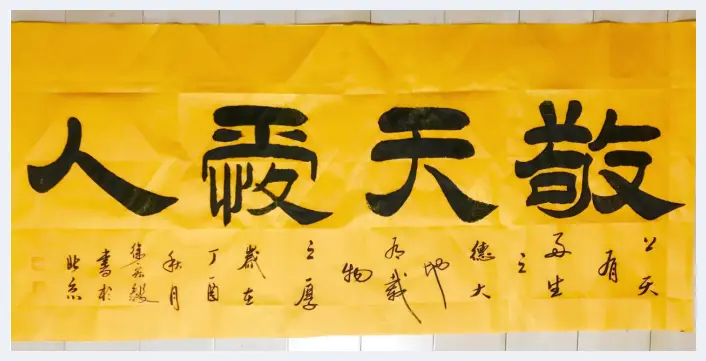 敬天愛人
上天
有
好生
之
德大
地
有載
物
之厚
歲在
丁酉
秋月
徐毅
書於
北京